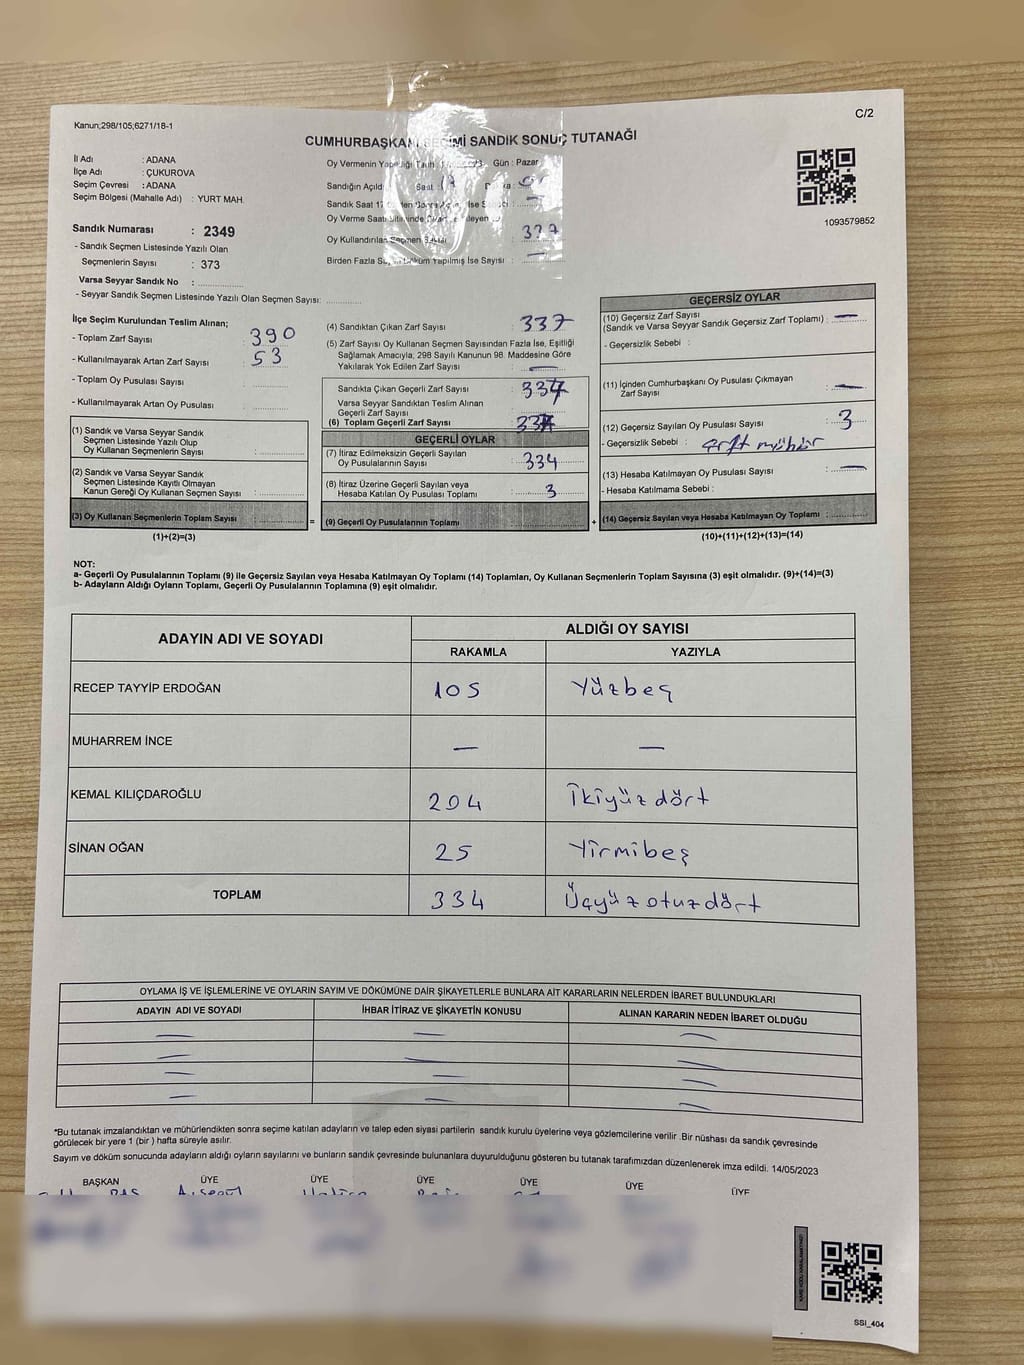 Kanun;298/105;6271/18-1
C/2
CUMHURBAŞKANI SEÇİMİ SANDIK SONUÇ TUTANAĞI
İl Adı : ADANA
İlçe Adı : ÇUKUROVA
Seçim Çevresi : ADANA
Seçim Bölgesi (Mahalle Adı) : YURT MAH.
Sandık Numarası : 2349
- Sandık Seçmen Listesinde Yazılı Olan
Seçmenlerin Sayısı : 373
Varsa Seyyar Sandık No :
- Seyyar Sandık Seçmen Listesinde Yazılı Olan Seçmen Sayısı:
Oy Vermenin Yapıldığı Gün : Pazar
Sandığın Açıldığı Saat : 17
Sandık Saat 17
Oy Verme Saati Bitiminde
Oy Kullandırılan Seçmen Sayısı : 337
Birden Fazla Sayım Döküm Yapılmış İse Sayısı : —
1093579852
İlçe Seçim Kurulundan Teslim Alınan;
- Toplam Zarf Sayısı : 390
- Kullanılmayarak Artan Zarf Sayısı : 53
- Toplam Oy Pusulası Sayısı :
- Kullanılmayarak Artan Oy Pusulası :
(1) Sandık ve Varsa Seyyar Sandık
Seçmen Listesinde Yazılı Olup
Oy Kullanan Seçmenlerin Sayısı :
(2) Sandık ve Varsa Seyyar Sandık
Seçmen Listesinde Kayıtlı Olmayan
Kanun Gereği Oy Kullanan Seçmen Sayısı :
(3) Oy Kullanan Seçmenlerin Toplam Sayısı :
(1)+(2)=(3)
=
(4) Sandıktan Çıkan Zarf Sayısı : 337
(5) Zarf Sayısı Oy Kullanan Seçmen Sayısından Fazla İse, Eşitliği
Sağlamak Amacıyla, 298 Sayılı Kanunun 98. Maddesine Göre
Yakılarak Yok Edilen Zarf Sayısı : —
Sandıkta Çıkan Geçerli Zarf Sayısı : 337
Varsa Seyyar Sandıktan Teslim Alınan
Geçerli Zarf Sayısı :
(6) Toplam Geçerli Zarf Sayısı :
GEÇERLİ OYLAR
(7) İtiraz Edilmeksizin Geçerli Sayılan
Oy Pusulalarının Sayısı : 334
(8) İtiraz Üzerine Geçerli Sayılan veya
Hesaba Katılan Oy Pusulası Toplamı : 3
(9) Geçerli Oy Pusulalarının Toplamı :
+
GEÇERSİZ OYLAR
(10) Geçersiz Zarf Sayısı
(Sandık ve Varsa Seyyar Sandık Geçersiz Zarf Toplamı) : —
- Geçersizlik Sebebi :
(11) İçinden Cumhurbaşkanı Oy Pusulası Çıkmayan
Zarf Sayısı : —
(12) Geçersiz Sayılan Oy Pusulası Sayısı : 3
- Geçersizlik Sebebi : çift mühür
(13) Hesaba Katılmayan Oy Pusulası Sayısı : —
- Hesaba Katılmama Sebebi :
(14) Geçersiz Sayılan veya Hesaba Katılmayan Oy Toplamı :
(10)+(11)+(12)+(13)=(14)
NOT:
a- Geçerli Oy Pusulalarının Toplamı (9) ile Geçersiz Sayılan veya Hesaba Katılmayan Oy Toplamı (14) Toplamları, Oy Kullanan Seçmenlerin Toplam Sayısına (3) eşit olmalıdır. (9)+(14)=(3)
b- Adayların Aldığı Oyların Toplamı, Geçerli Oy Pusulalarının Toplamına (9) eşit olmalıdır.
ADAYIN ADI VE SOYADI
ALDIĞI OY SAYISI
RAKAMLA YAZIYLA
RECEP TAYYİP ERDOĞAN 105 Yüzbeş
MUHARREM İNCE — —
KEMAL KILIÇDAROĞLU 204 İkiyüzdört
SİNAN OĞAN 25 Yirmibeş
TOPLAM 334 Üçyüzotuzdört
OYLAMA İŞ VE İŞLEMLERİNE VE OYLARIN SAYIM VE DÖKÜMÜNE DAİR ŞİKAYETLERLE BUNLARA AİT KARARLARIN NELERDEN İBARET BULUNDUKLARI
ADAYIN ADI VE SOYADI İHBAR İTİRAZ VE ŞİKAYETİN KONUSU ALINAN KARARIN NEDEN İBARET OLDUĞU
— — —
— — —
— — —
— — —
*Bu tutanak imzalandıktan ve mühürlendikten sonra seçime katılan adayların ve talep eden siyasi partilerin sandık kurulu üyelerine veya gözlemcilerine verilir .Bir nüshası da sandık çevresinde
görülecek bir yere 1 (bir ) hafta süreyle asılır.
Sayım ve döküm sonucunda adayların aldığı oyların sayılarını ve bunların sandık çevresinde bulunanlara duyurulduğunu gösteren bu tutanak tarafımızdan düzenlenerek imza edildi. 14/05/2023
BAŞKAN ÜYE ÜYE ÜYE ÜYE ÜYE ÜYE
SSI_404